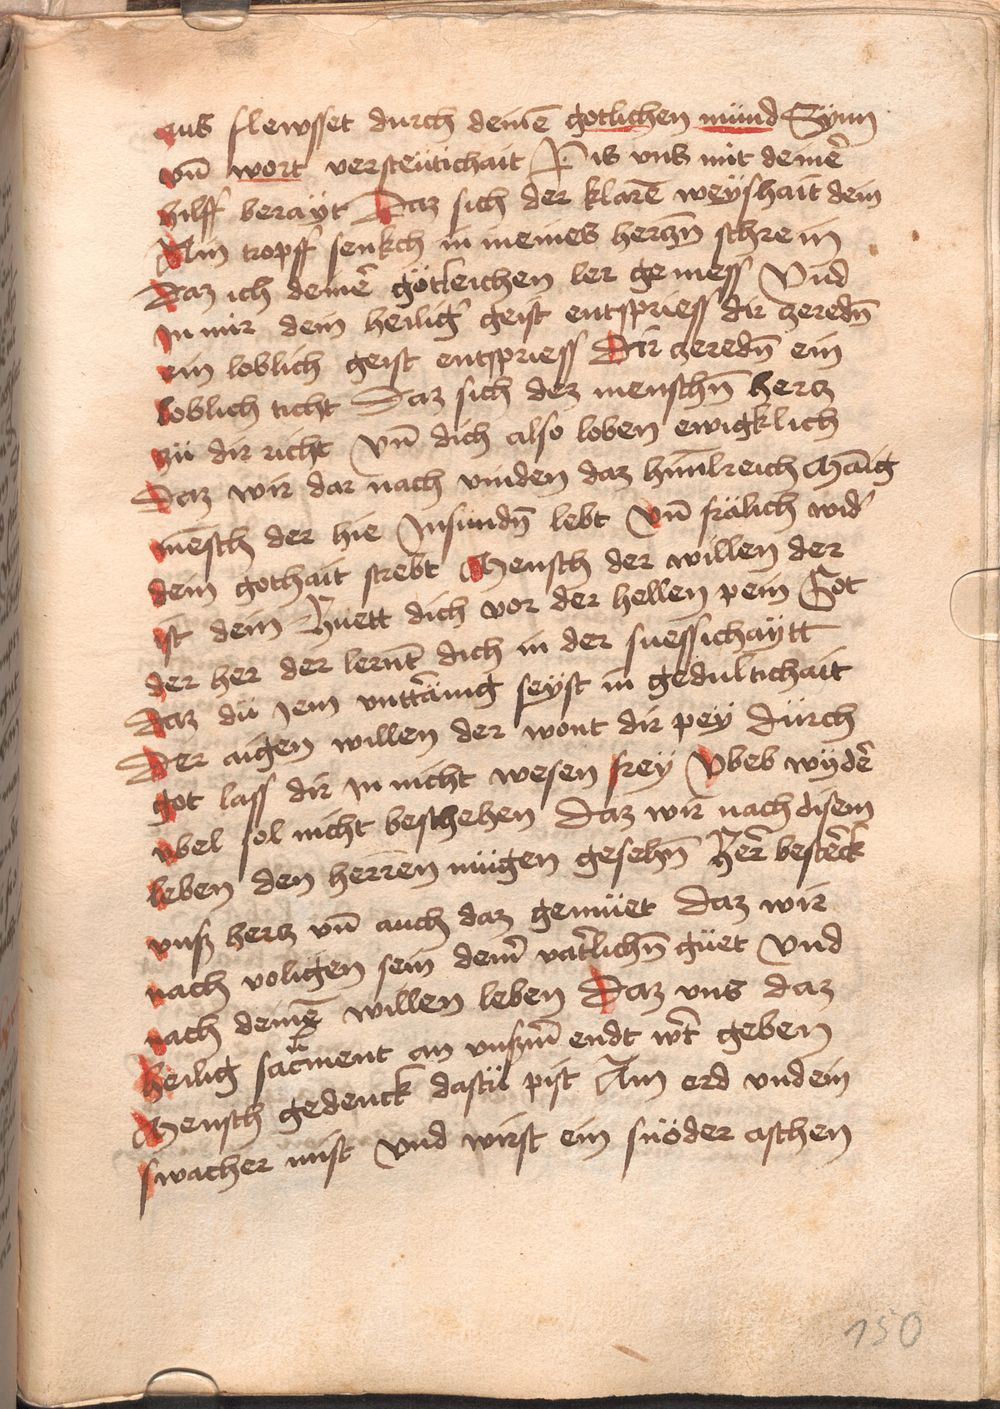 aus flewsset durch deinē gotlichen mund Synn
vn̄ wort verstentichait Pis vns mit deinē
hilff berayt Daz sich der klarē weyshait dein
Ain tropff senkch in meines herczn̄ schrein
Daz ich deinē götleichen ler geniess Vnd
In mir dein heilig geist entspriess dir zeredn̄
ein loblich geist entspriess Dir zeredn̄ ein
loblich ticht Daz sich dez menschn̄ hercz
zü dir richt Vn̄ dich also loben ewigklich
Daz wir dar nach vinden daz himlreich Mānig
mēsch der hie In sundn̄ lebt Vn̄ frälich wid
dein gothait strebt Mensch der willen der
ist dein Huett dich vor der hellen pein Got
der her der lernt dich in der suessichaytt
Daz dü Iem vnttānig seyst in gedultichait
Der aigen willen der wont dir pey Dürch
got lass dir In nicht wesen frey Vbeb wyder
vbel sol nicht beschehen Daz wir nach disem
leben den herren mügen gesehn̄ Her besterck
vnsz hercz vn̄ auch daz gemüet Daz wir
nach voligen sein dem̄ vaterlichn̄ güet Vnd
nach deinē willen leben Daz vns daz
heilig sacment an vnszm̄ endt wt geben
Mensch gedenck dastü pist Ain erd vnd ein
swacher mist Vnd wirst ein snöder aschen
150